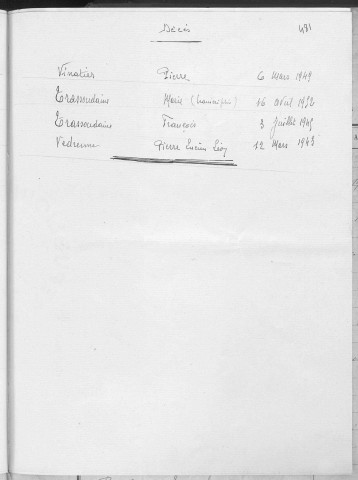 Décès 431
Vinatier Pierre 6 Mars 1949
Trassoudaine Marie (transcription) 16 avril 1952
Trassoudaine François 3 Juillet 1945
Vedrenne Pierre Lucien Léon 12 Mars 1943